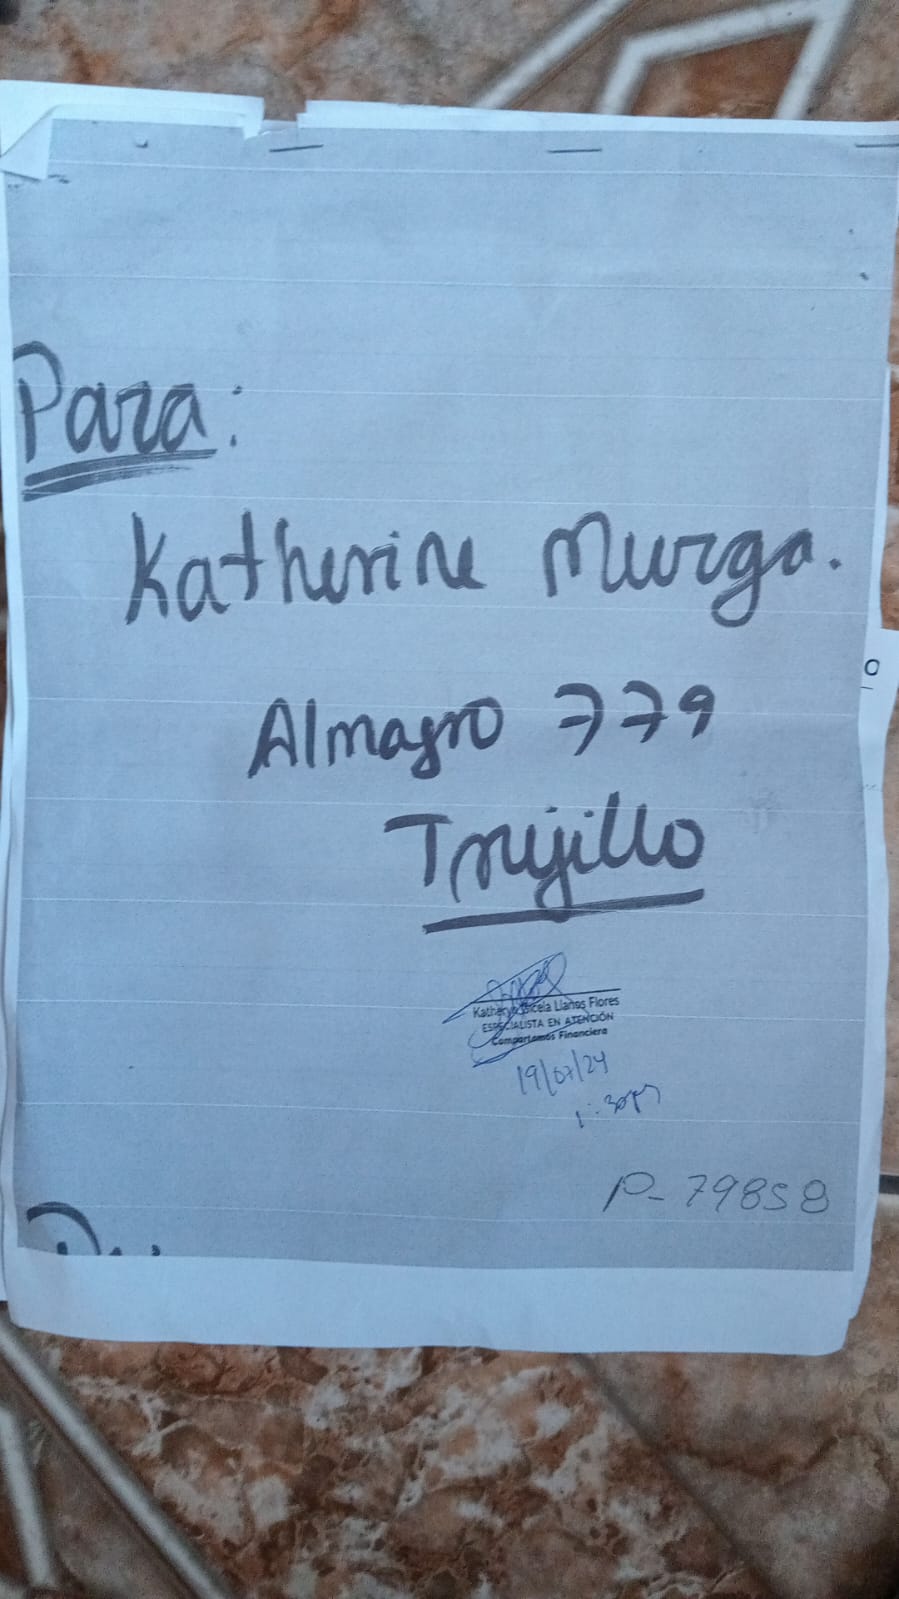 Para:
Katherine Murga.
Almagro 779
Trujillo
Llanos Flores
ESPECIALISTA EN ATENCIÓN
Compartamos Financiera
19/07/24
P- 79858
o